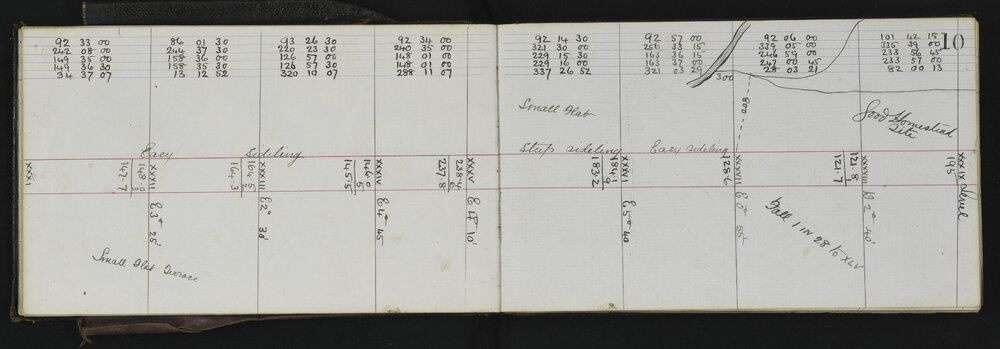 92 33 00
242 08 00
149 35 00
149 36 30
34 37 07
86 01 30
244 37 30
158 36 00
158 35 30
13 12 52
93 26 30
220 23 30
126 57 00
126 57 30
320 10 07
92 34 00
240 35 00
148 01 00
148 01 00
288 11 07
92 14 30
321 30 00
229 15 30
229 16 00
337 26 52
92 57 00
163 36 15
163 37 00
321 03 29
92 06 00
339 05 00
246 59 00
247 00 45
28 03 21
101 42 15
335 39 00
233 56 45
233 57 00
82 00 13
10
300
800
Small Flat
Good Homestead Site
Easy Sideling
Steep sideling
Easy sideling
XXXI
XXXII
148.0
3
147.7
XXXIII
164.5
2
164.3
XXXIV
146.0
5
145.5
XXXV
238.4
6
237.8
XXXVI
184.1
9
183.2
XXXVII
128.6
XXXVIII
121.8
1
121.7
XXXIX
195
Level
E 3° 25'
E 2° 30'
E 4° 45
E 4° 10'
E 5° 40
E 0° 55'
D 2° 40'
Small Flat Terrace
Fall 1 IN 28 to XLV